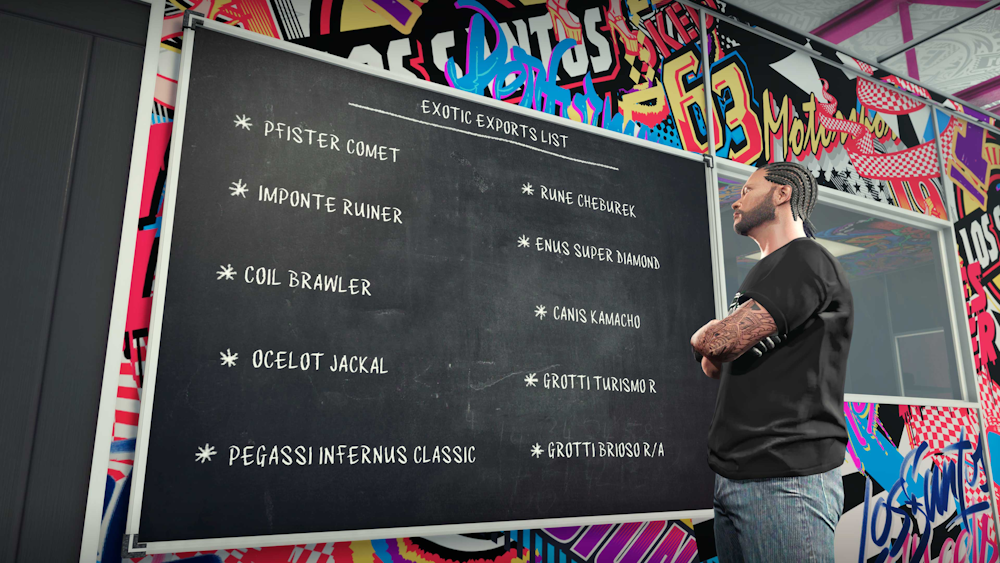 LOS SANTOS
63
EXOTIC EXPORTS LIST
* PFISTER COMET
* IMPONTE RUINER
* COIL BRAWLER
* OCELOT JACKAL
* PEGASSI INFERNUS CLASSIC
* RUNE CHEBUREK
* ENUS SUPER DIAMOND
* CANIS KAMACHO
* GROTTI TURISMO R
* GROTTI BRIOSO R/A
Los Santos